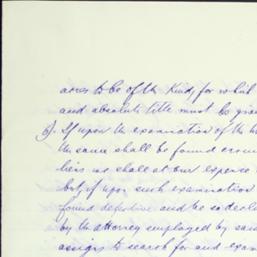 acres to be of the kind, for which
and absolute title must be given
6). If upon the examination of the
the same shall be found
liens we shall at our expense
but if upon such examination
found defective and be so
by the attorney employed by
assigns to search for and